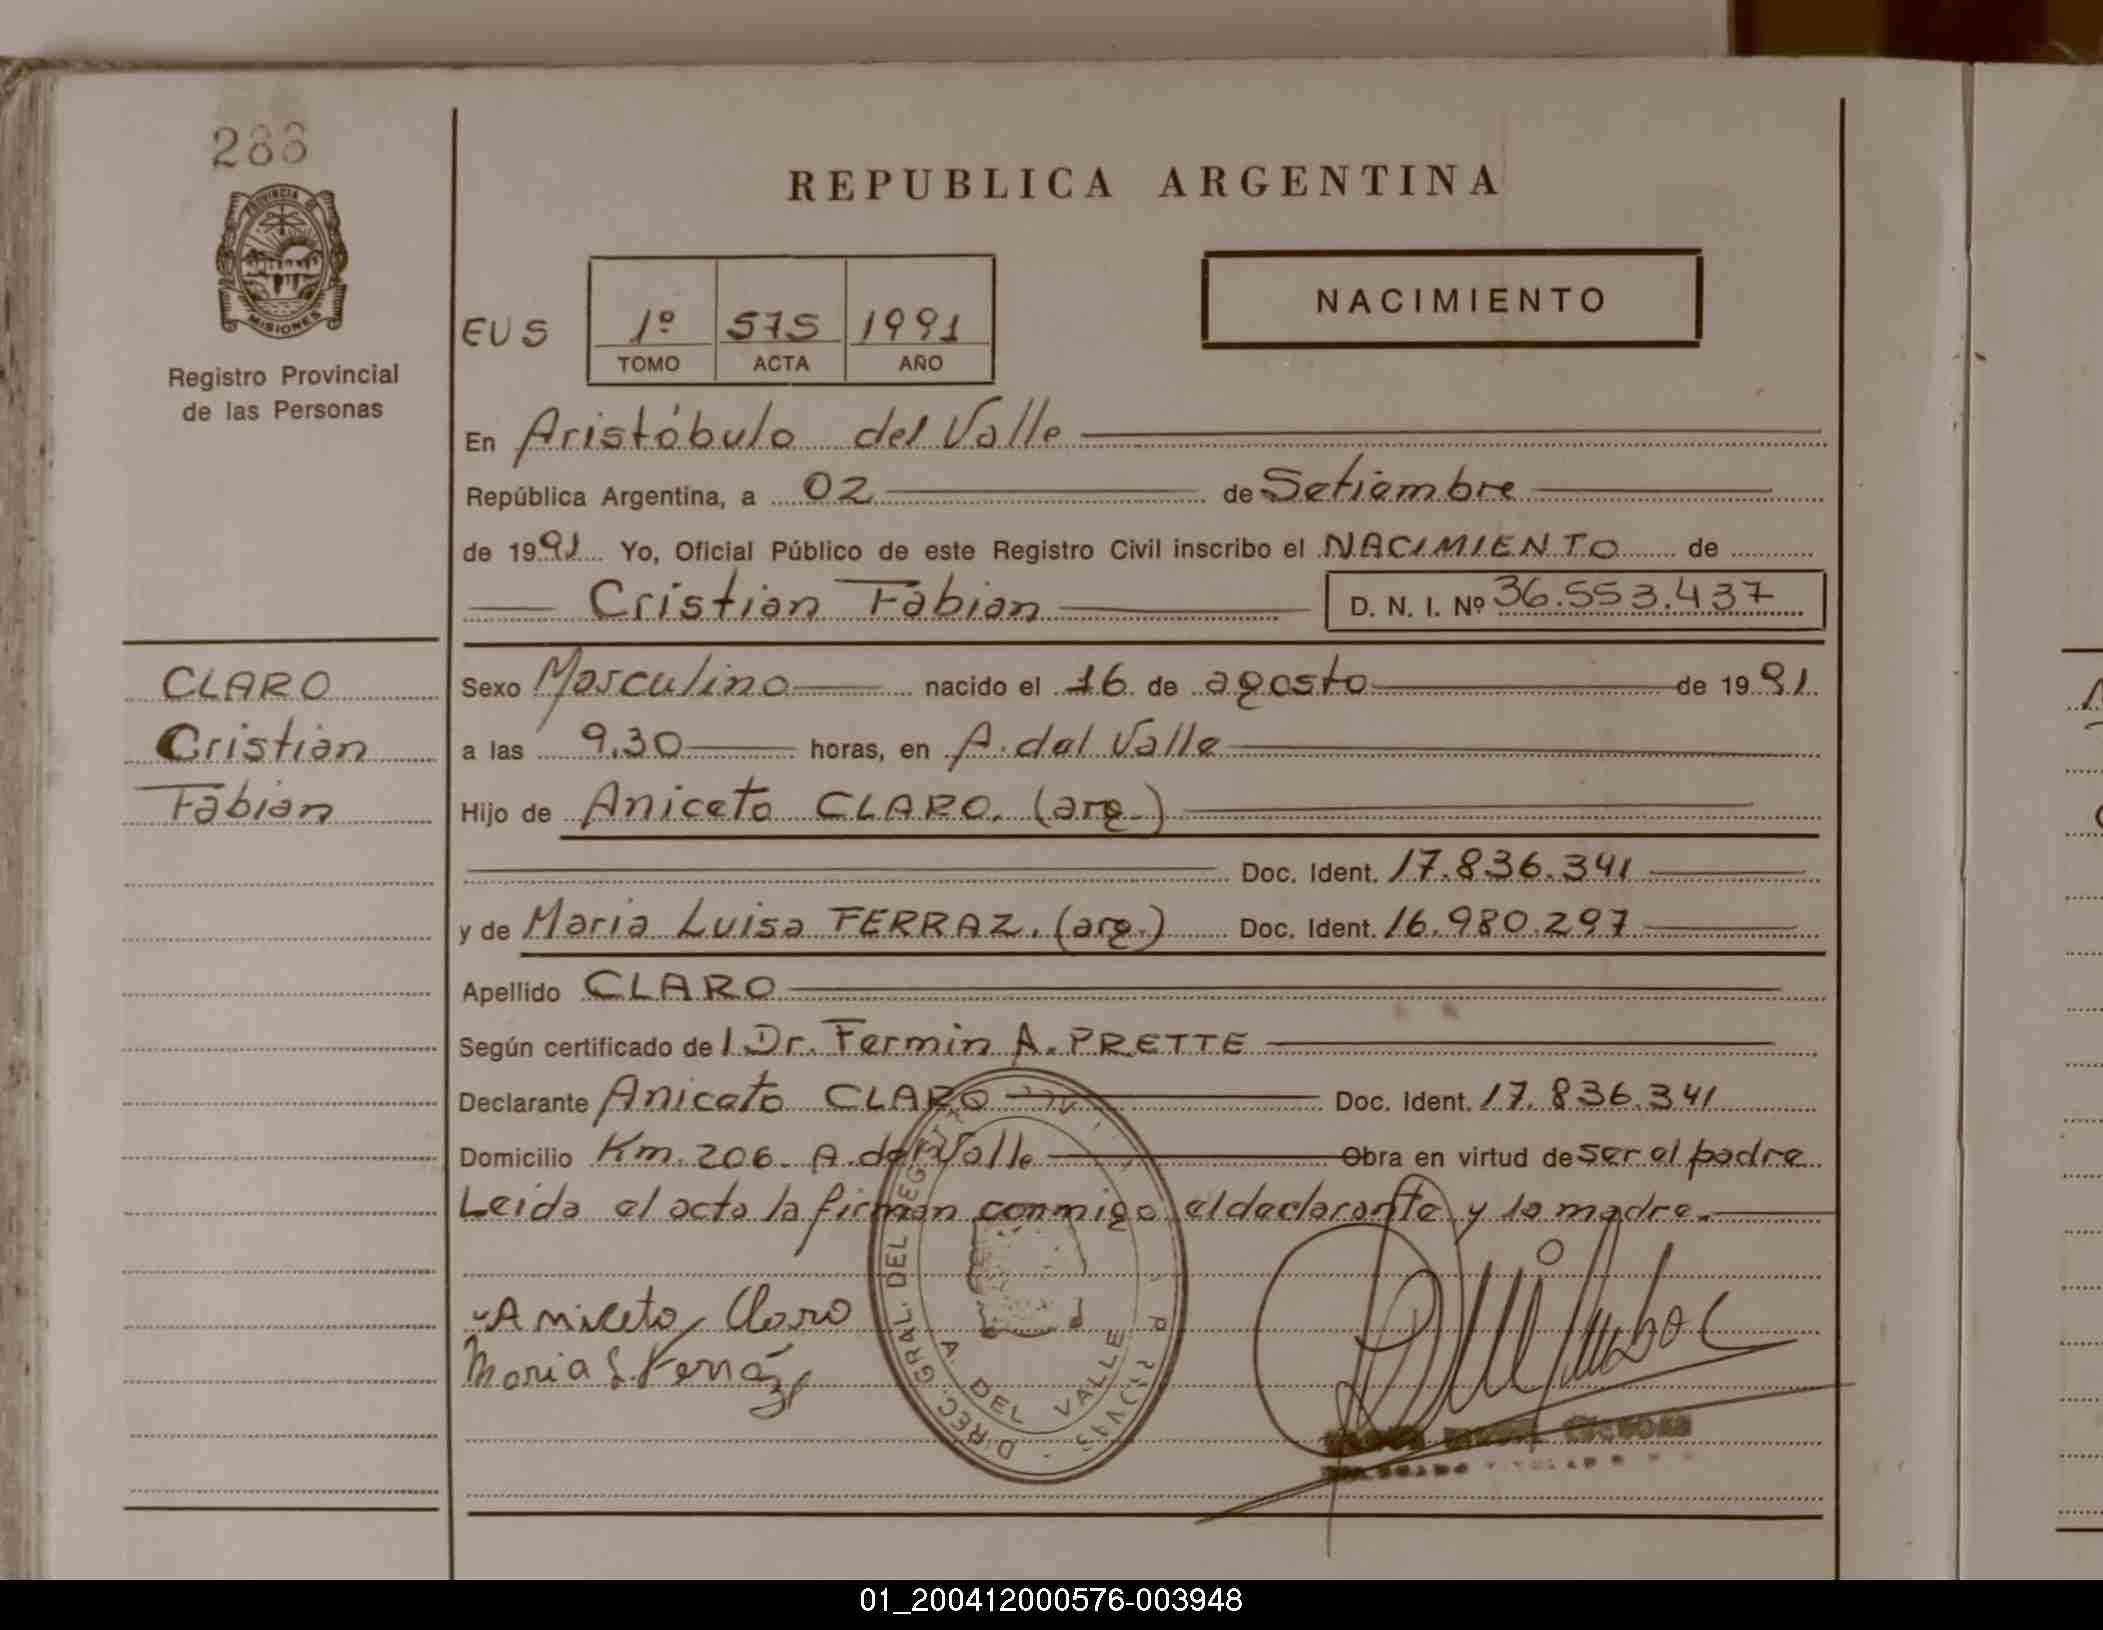 288
PROVINCIA DE
MISIONES
Registro Provincial
de las Personas
REPUBLICA ARGENTINA
NACIMIENTO
EUS
1º 575 1991
TOMO ACTA AÑO
En Aristóbulo del Valle
República Argentina, a 02 de Setiembre
de 1991 Yo, Oficial Público de este Registro Civil inscribo el NACIMIENTO de
Cristian Fabian D. N. I. Nº 36.553.437
CLARO
Cristian
Fabian
Sexo Masculino nacido el 16 de agosto de 1991
a las 9,30 horas, en A. del Valle
Hijo de Aniceto CLARO. (arg.)
Doc. Ident. 17.836.341
y de Maria Luisa FERRAZ. (arg.) Doc. Ident. 16.980.297
Apellido CLARO
Según certificado de l Dr. Fermin A. PRETTE
Declarante Aniceto CLARO Doc. Ident. 17.836.341
Domicilio Km. 206- A. del Valle Obra en virtud de ser el padre
Leida el acta la firman conmigo el declarante y la madre.
Aniceto Claro
Maria L. Ferráz
DIREC. GRAL. DEL REGIST
A. DEL VALLE
01_200412000576-003948